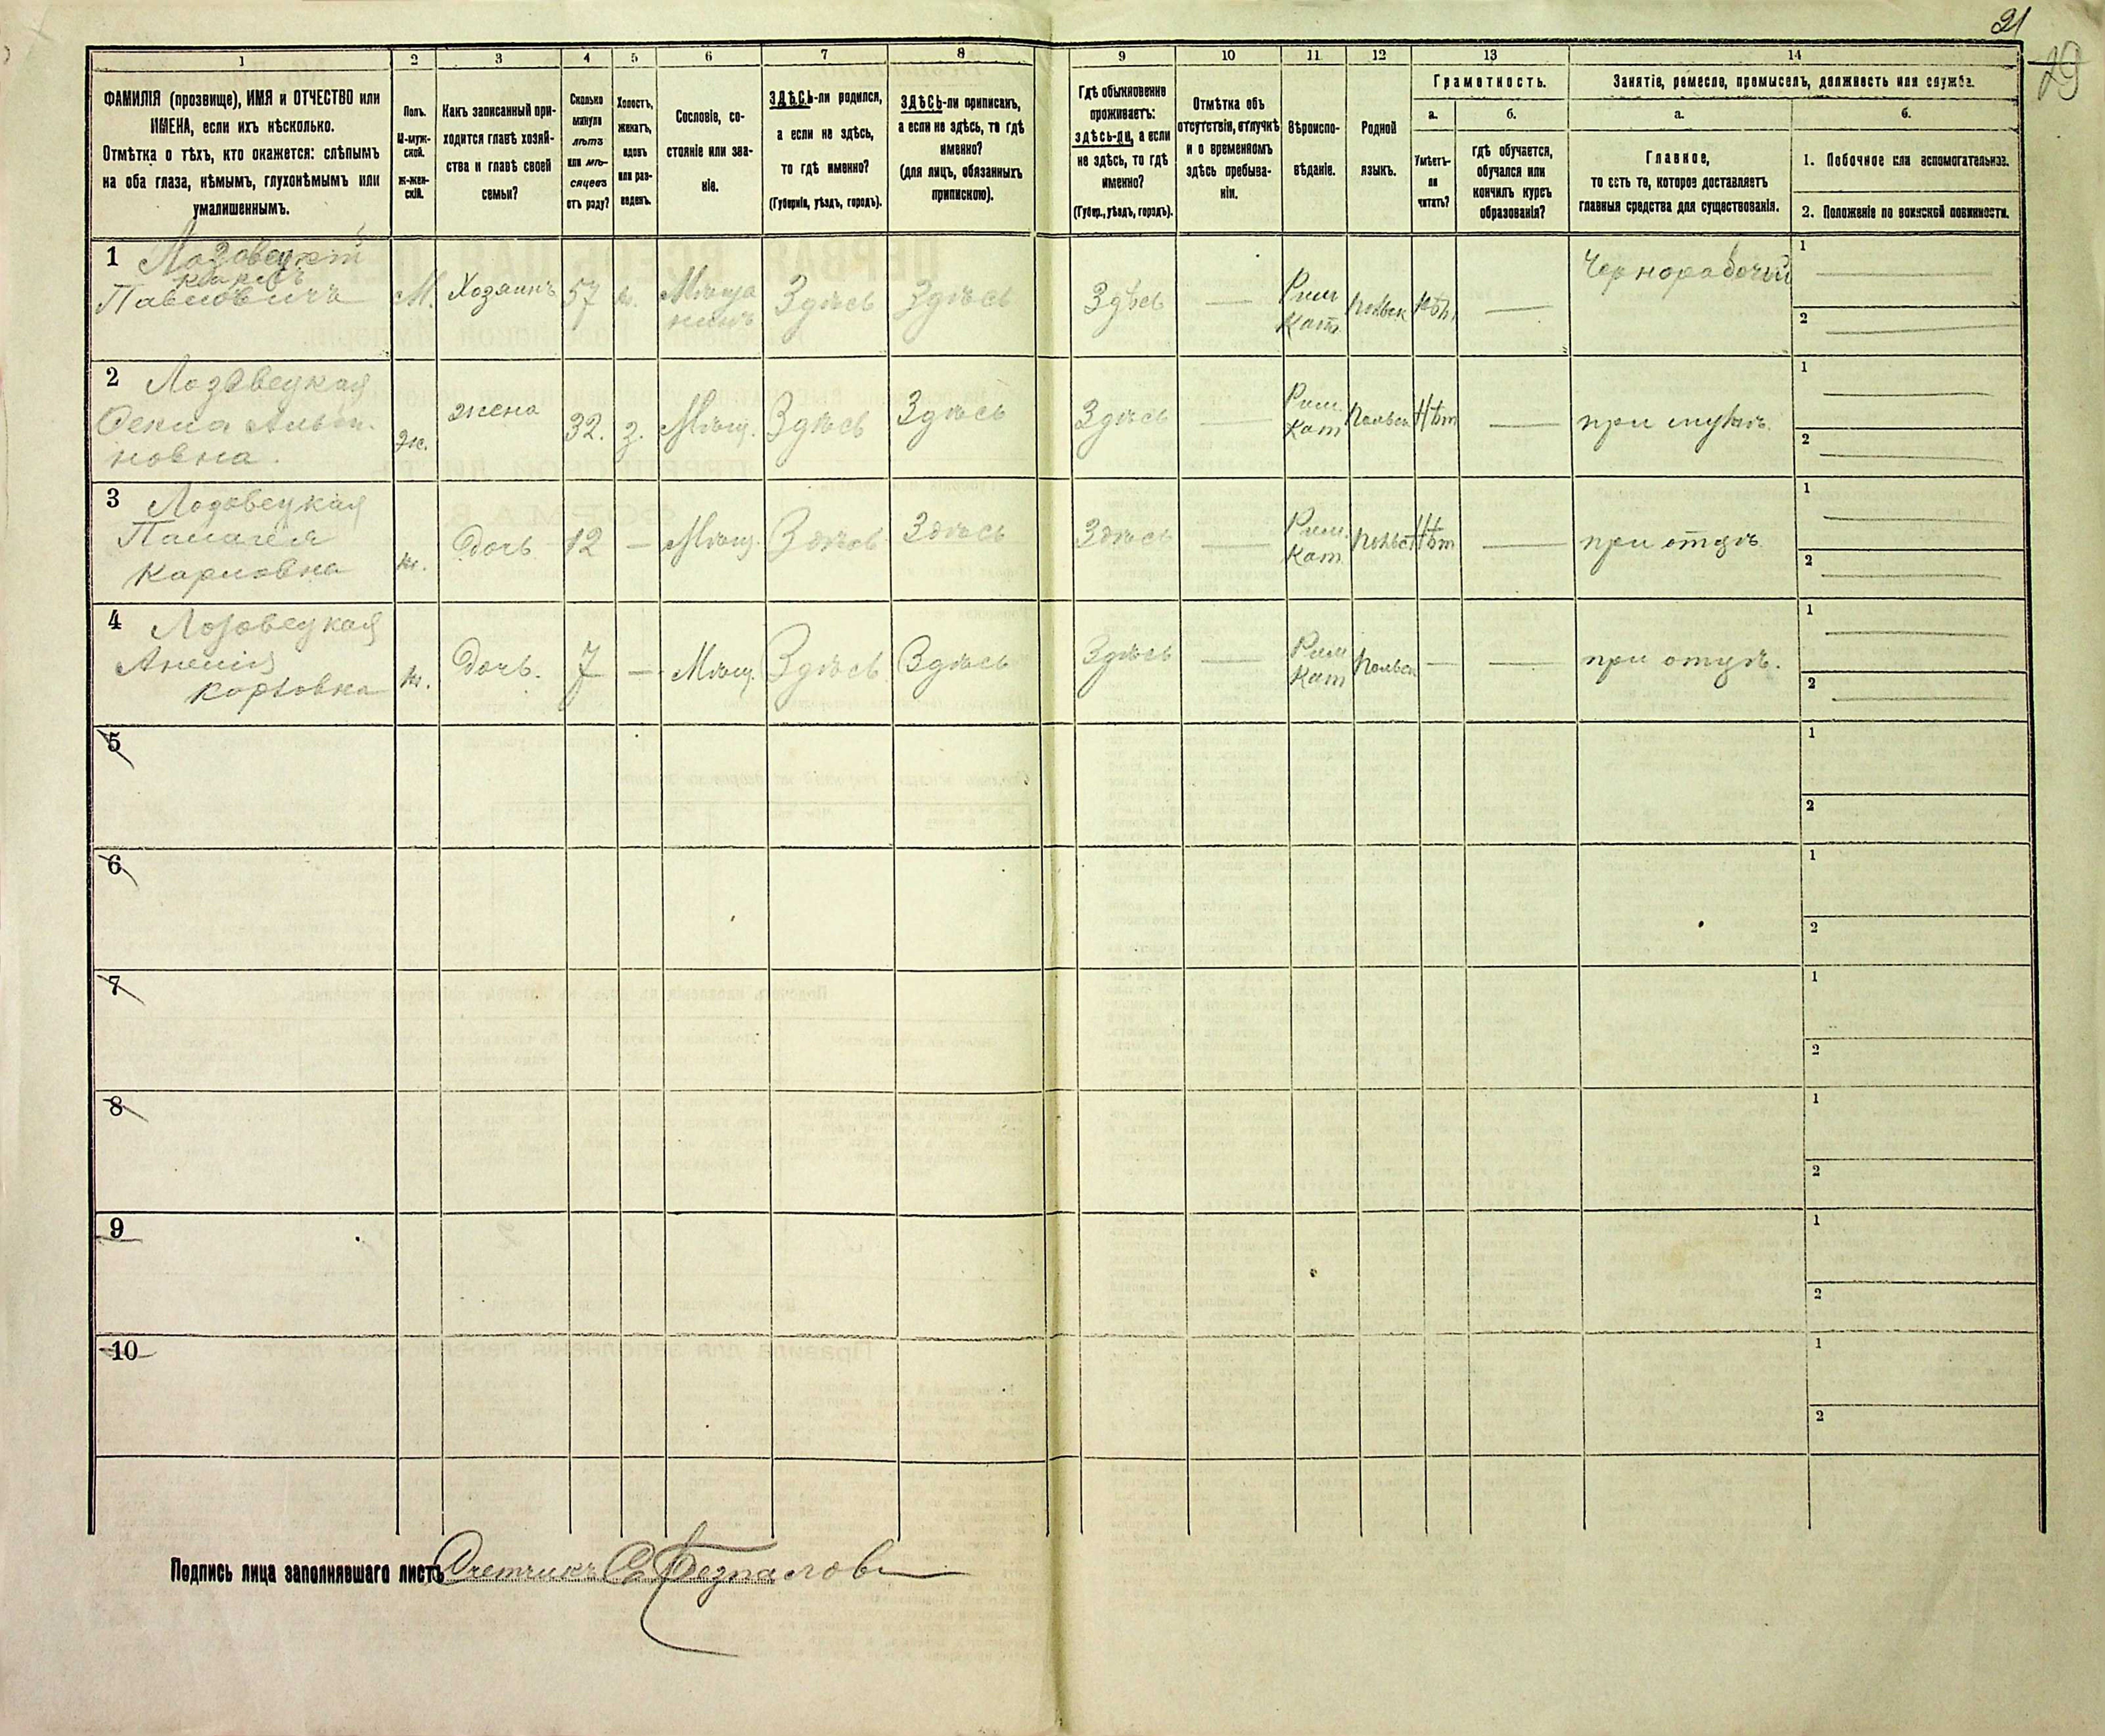 21
29
1 2 3 4 5 6 7 8 9 10 11 12 13 14
ФАМИЛІЯ (прозвище), ИМЯ и ОТЧЕСТВО или
ИМЕНА, если ихъ нѣсколько.
Отмѣтка о тѣхъ, кто окажется: слѣпымъ
на оба глаза, нѣмымъ, глухонѣмымъ или
умалишеннымъ.
Полъ.
М-муж-
ской.
Ж-жен-
скій.
Какъ записанный при-
ходится главѣ хозяй-
ства и главѣ своей
семьи?
Сколько
минуло
лѣтъ
или мѣ-
сяцевъ
отъ роду?
Холостъ,
женатъ,
вдовъ
или раз-
веденъ.
Сословіе, со-
стояніе или зва-
ніе.
ЗДѢСЬ-ли родился,
а если не здѣсь,
то гдѣ именно?
(Губернія, уѣздъ, городъ).
ЗДѢСЬ-ли приписанъ,
а если не здѣсь, то гдѣ
именно?
(для лицъ, обязанныхъ
припискою).
Гдѣ обыкновенно
проживаетъ:
здѣсь-ли, а если
не здѣсь, то гдѣ
именно?
(Губер., уѣздъ, городъ).
Отмѣтка объ
отсутствіи, отлучкѣ
и о временномъ
здѣсь пребыва-
ніи.
Вѣроиспо-
вѣданіе.
Родной
языкъ.
Грамотность.
а.
Умѣетъ-
ли
читать?
б.
гдѣ обучается,
обучался или
кончилъ курсъ
образованія?
Занятіе, ремесло, промыселъ, должность или служба.
а.
Главное,
то есть то, которое доставляетъ
главныя средства для существованія.
б.
1. Побочное или вспомогательное.
2. Положеніе по воинской повинности.
1 Лозовецкій
Карлъ
Павловичъ
М. Хозяинъ 57 Мѣща
нинъ Здѣсь Здѣсь Здѣсь — Рим
Кат. Польск Нѣт — Чернорабочій
1
2
2 Лозовецкая
новна.
Ж. жена 32. з. Мѣщ. Здѣсь Здѣсь Здѣсь — Рим.
Кат Польск Нѣт — при мужѣ.
1
2
3 Лозовецкая
Пелагея
Карловна
ж. Дочь 12 — Мѣщ. Здѣсь Здѣсь Здѣсь — Рим.
Кат Польс Нѣт — при отцѣ
1
2
4 Лозовецкая
Анелія
Карловна
ж. Дочь. 7 — Мѣщ. Здѣсь Здѣсь Здѣсь — Рим
Кат Польск — — при отцѣ.
1
2
5
1
2
6
1
2
7
1
2
8
1
2
9
1
2
10
1
2
Подпись лица заполнявшаго листъ Счетчикъ